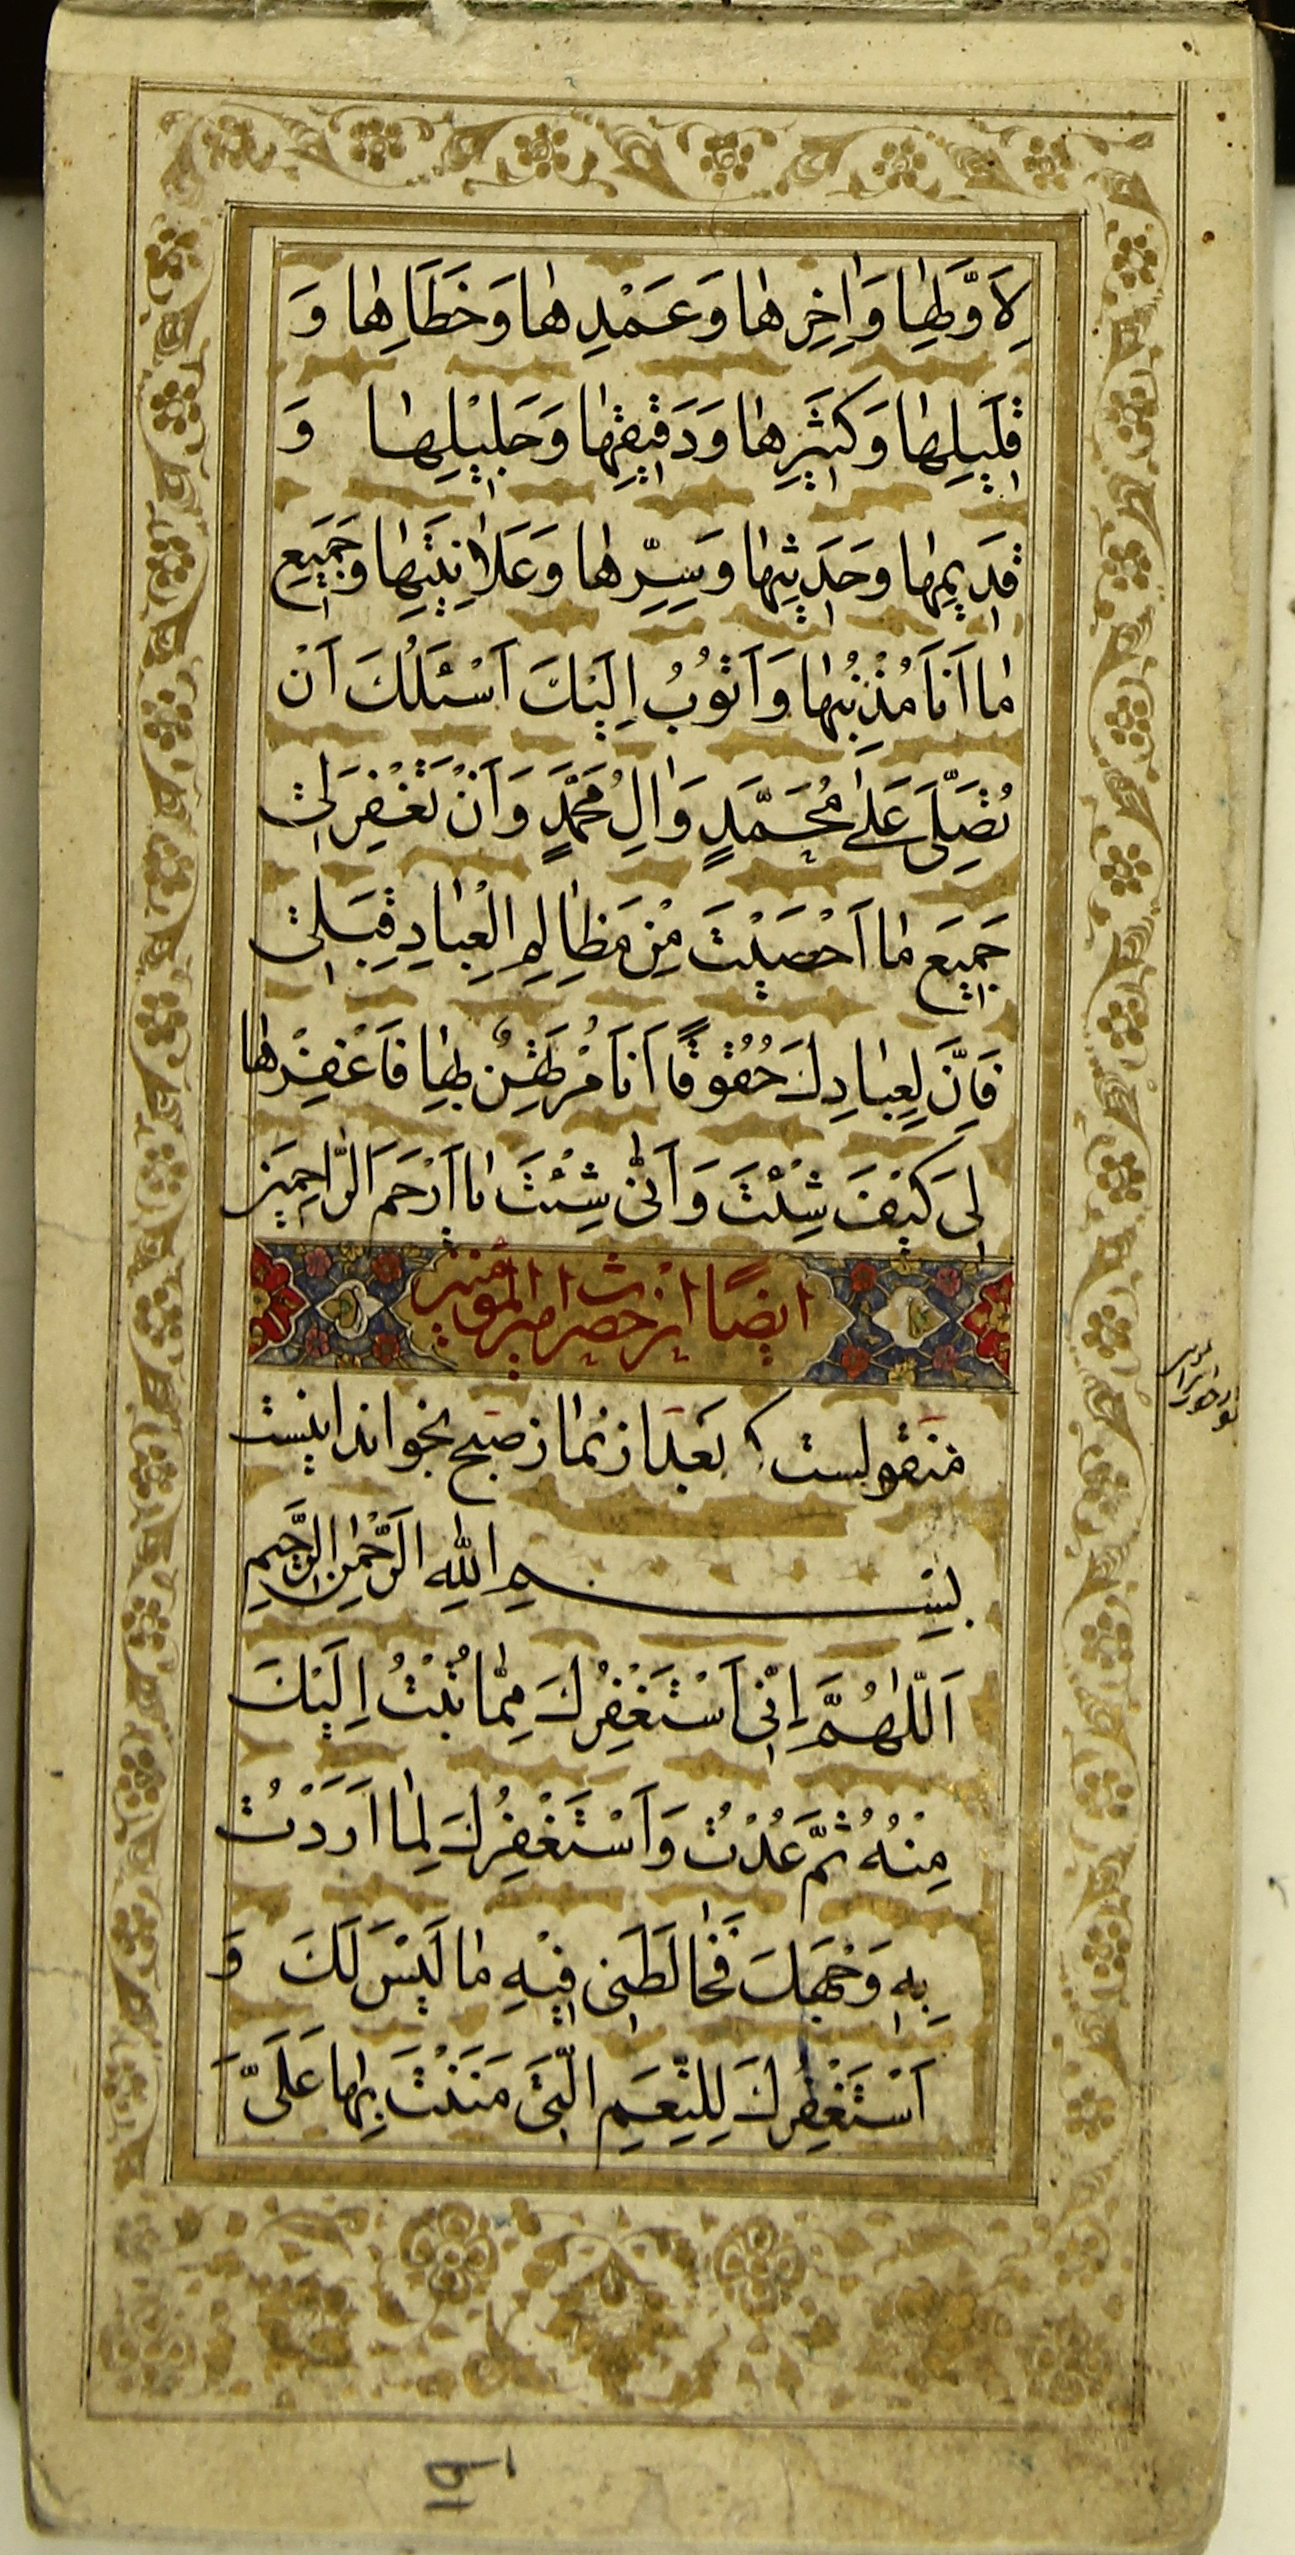 لِاَوَّلِهٰا وَاٰخِرِهٰا وَعَمْدِهٰا وَخَطَاِهٰا وَ
قَلٖيلِهٰا وَكَثٖيرِهٰا وَدَقٖيقِهٰا وَجَلٖيْلِهٰا وَ
قَدٖيمِهٰا وَحَدٖيثِهٰا وَسِرِّهٰا وَعَلاٰنِيَتِهٰا وَجَمٖيعِ
مٰا اَنَا مُذْنِبُهٰا وَاَتُوْبُ اِلَيْكَ اَسْئَلُكَ اَنْ
تُصَلِّىَ عَلٰى مُحَمَّدٍ وَاٰلِ مُحَمَّدٍ وَاَنْ تَغْفِرَ لٖى
جَمٖيعَ مٰا اَحْصَيْتَ مِنْ مَظٰالِمِ الْعِبٰادِ قِبَلٖى
فَاِنَّ لِعِبٰادِكَ حُقُوْقًا اَنَا مُرْتَهَنٌ بِهٰا فَاغْفِرْهٰا
لٖى كَيْفَ شِئْتَ وَاَنّٰى شِئْتَ يٰا اَرْحَمَ الرَّاحِمٖينَ
ايضًا از حضرت امير المؤمنين
منقولست كه بعد از نماز صبح بخواند اينست
بِسْمِ اللّٰهِ الرَّحْمٰنِ الرَّحٖيمِ
اَللّٰهُمَّ اِنّٖى اَسْتَغْفِرُكَ مِمّٰا تُبْتُ اِلَيْكَ
مِنْهُ ثُمَّ عُدْتُ وَاَسْتَغْفِرُكَ لِمٰا اَرَدْتُ
بِهٖ وَجْهَكَ فَخٰالَطَنٖى فٖيْهِ مٰا لَيْسَ لَكَ وَ
اَسْتَغْفِرُكَ لِلنِّعَمِ الَّتٖى مَنَنْتَ بِهٰا عَلَىَّ